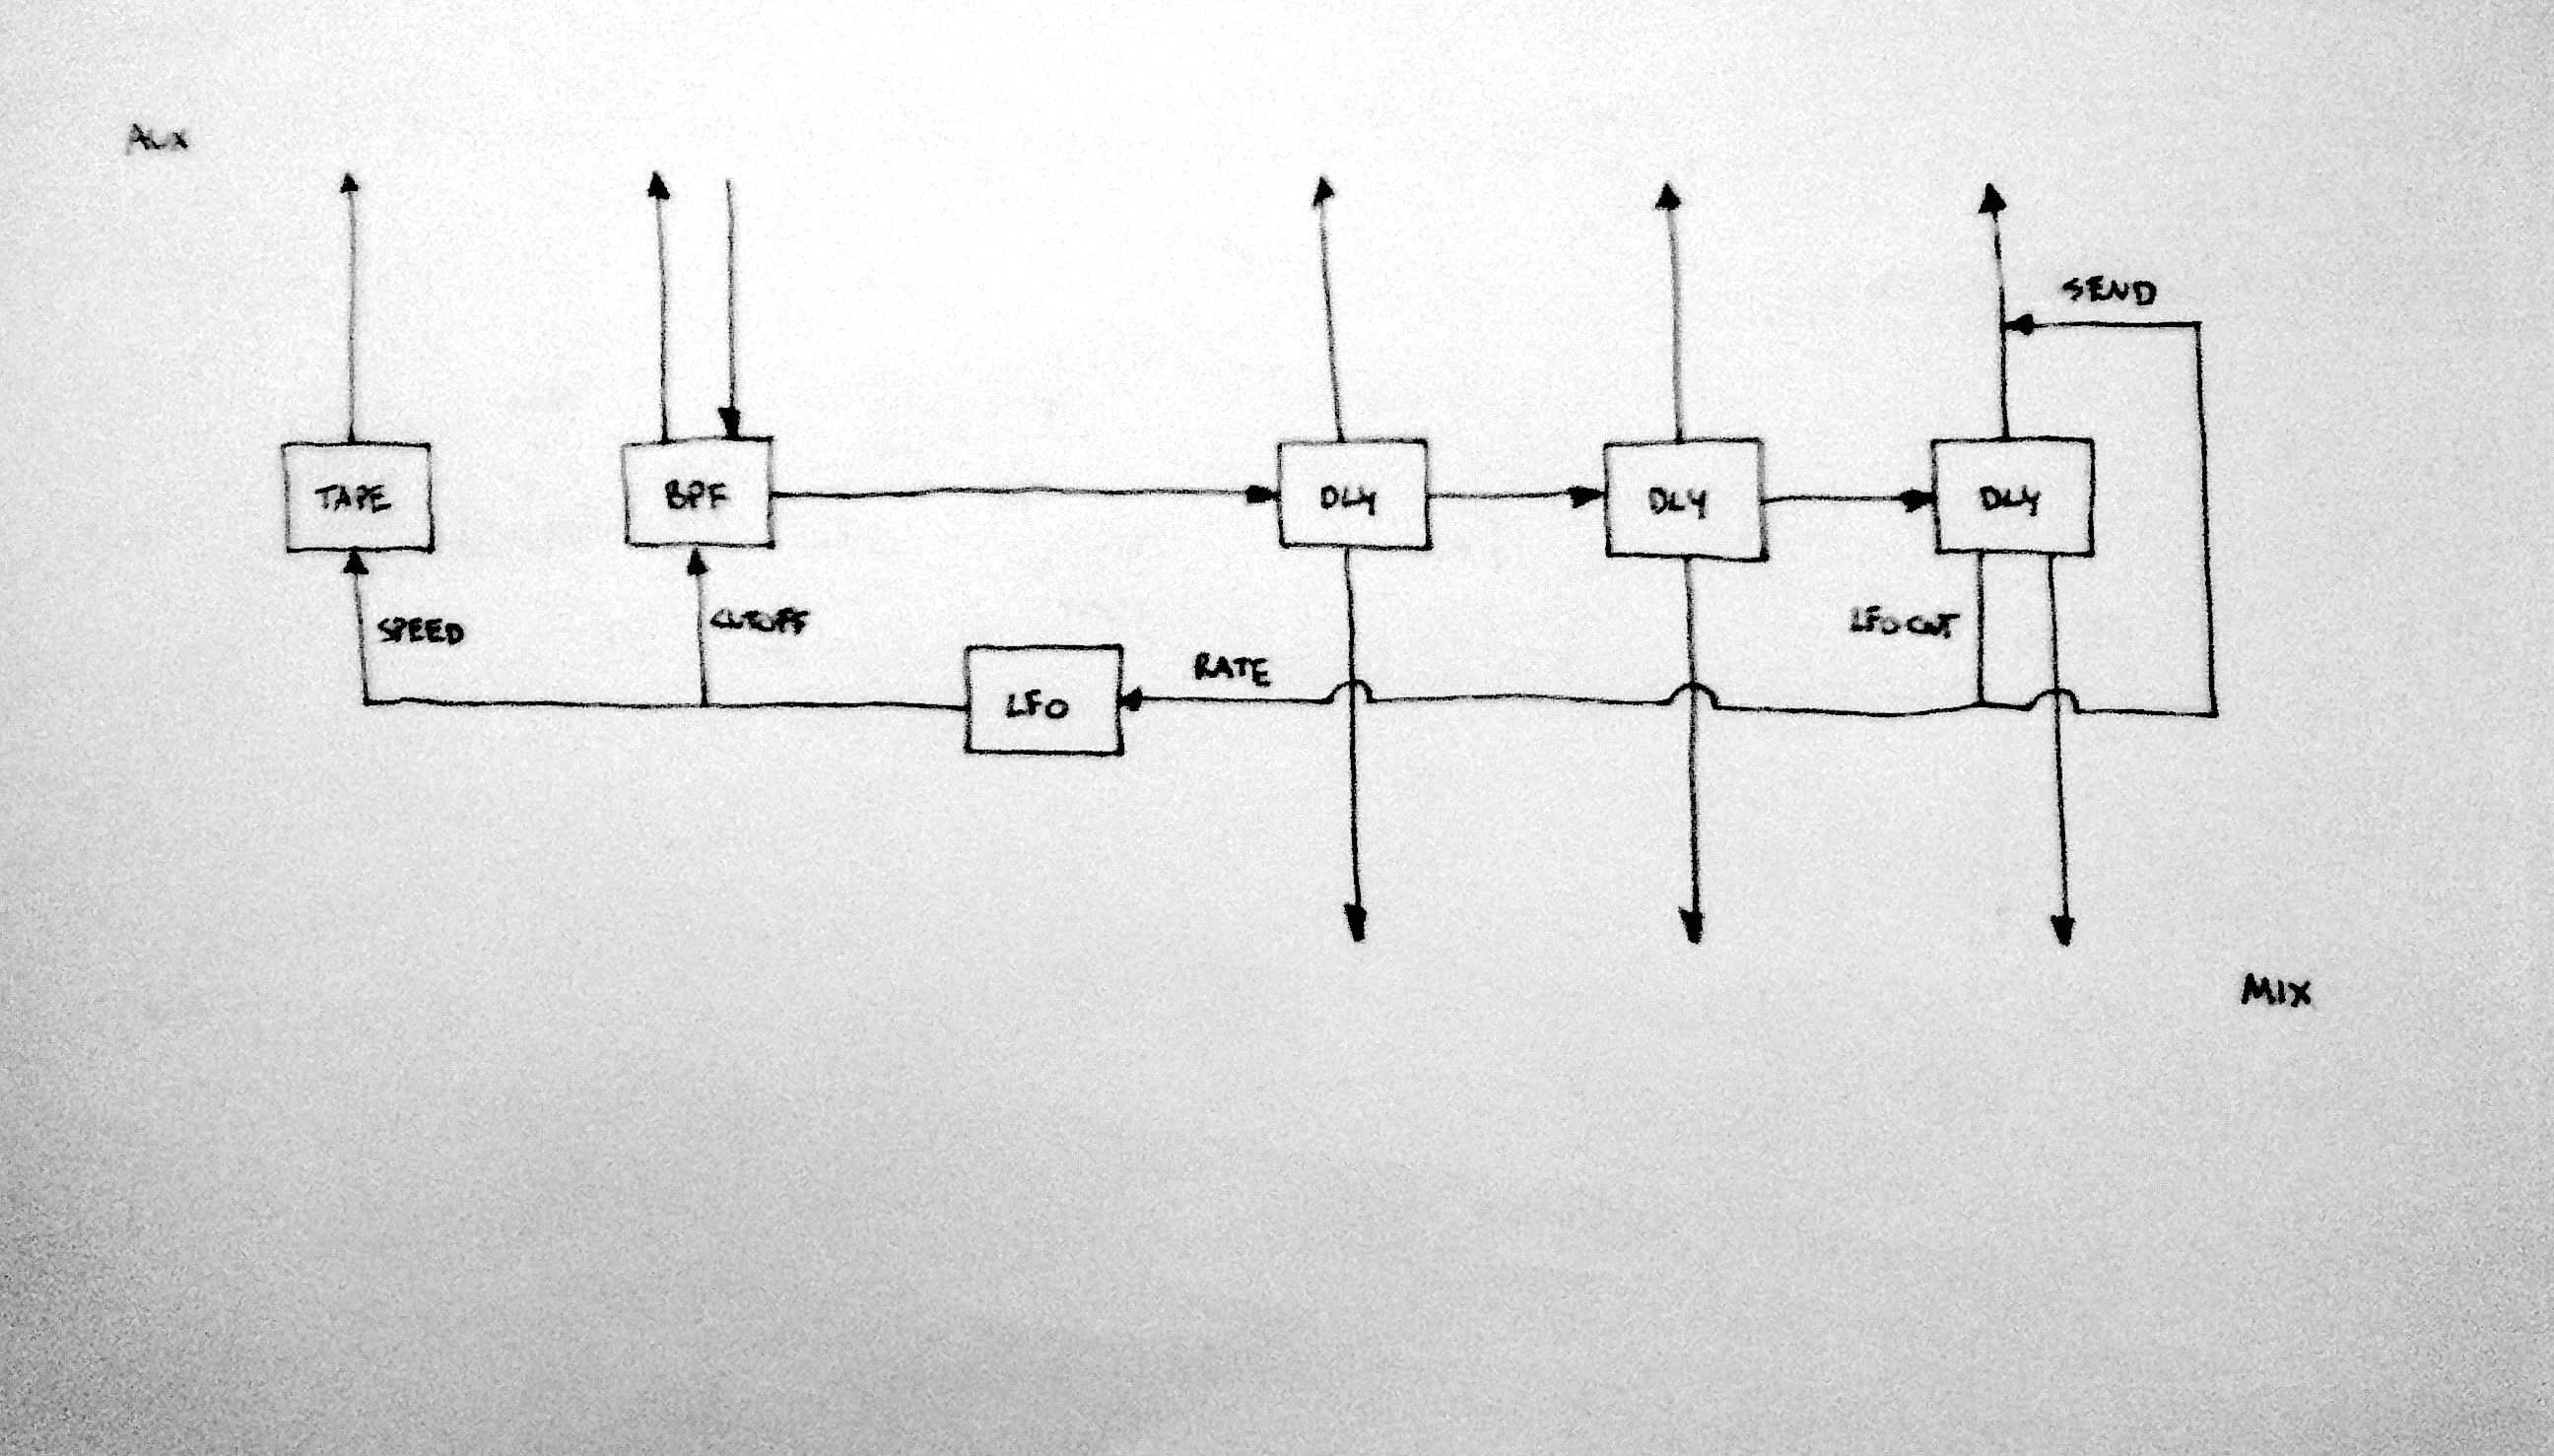 AUX
SEND
TAPE
BPF
DLY
DLY
DLY
SPEED
CUTOFF
LFO OUT
RATE
LFO
MIX